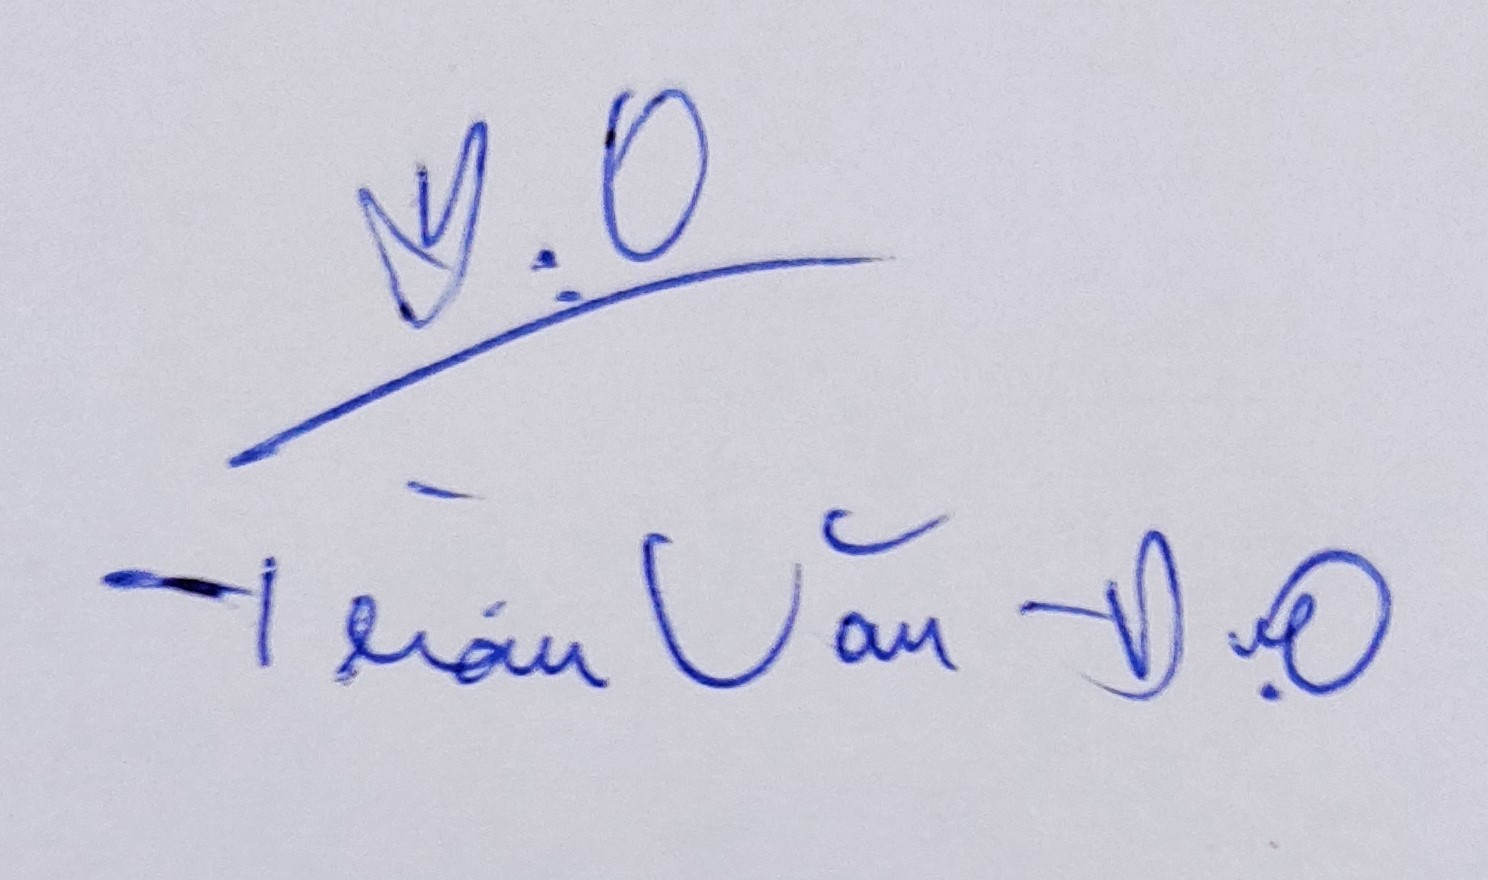 Đ.O
Trần Văn Đ.O